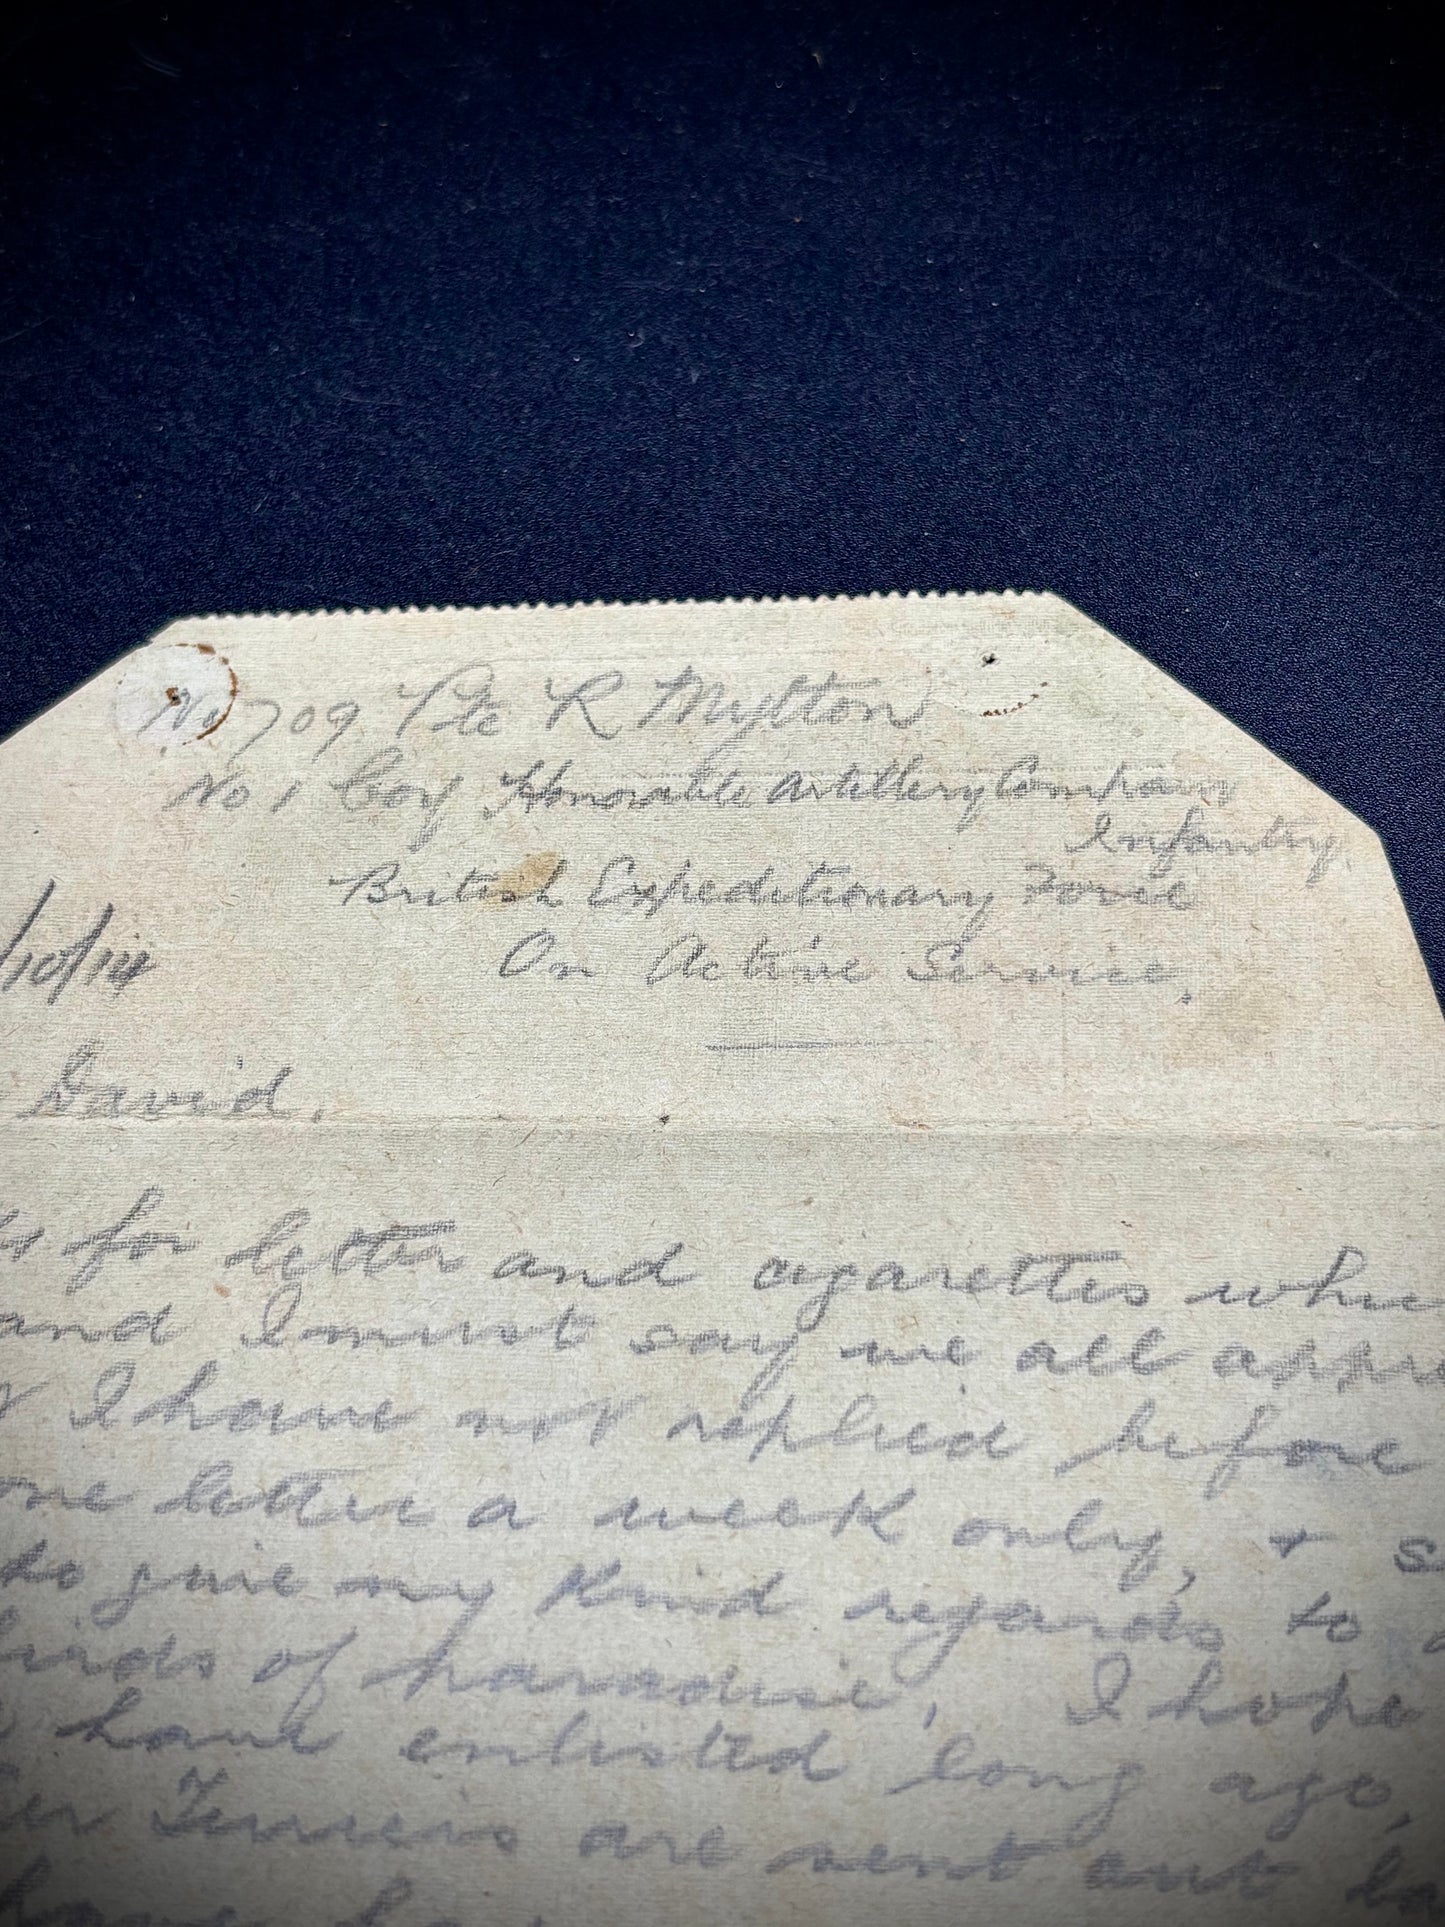 No 709 Pte R Mylton
No 1 Coy Honorable Artillery Company
Infantry.
British Expeditionary Force
On Active Service,
/10/14
David.
for letter and cigarettes whi
and I must say we all appre
I have not replied before
one letter a week only, + s
to give my kind regards to
birds of paradise, I hope
have enlisted long ago,
Terriers are sent out